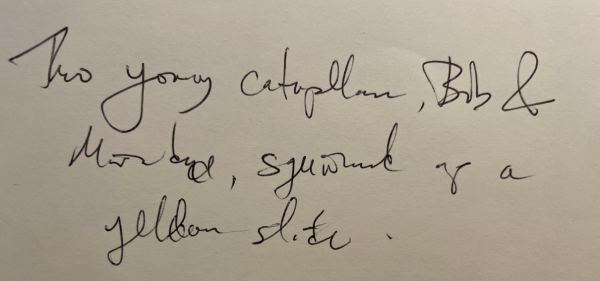 Two young caterpillars, Bob &
squirmed up a
yellow slide.